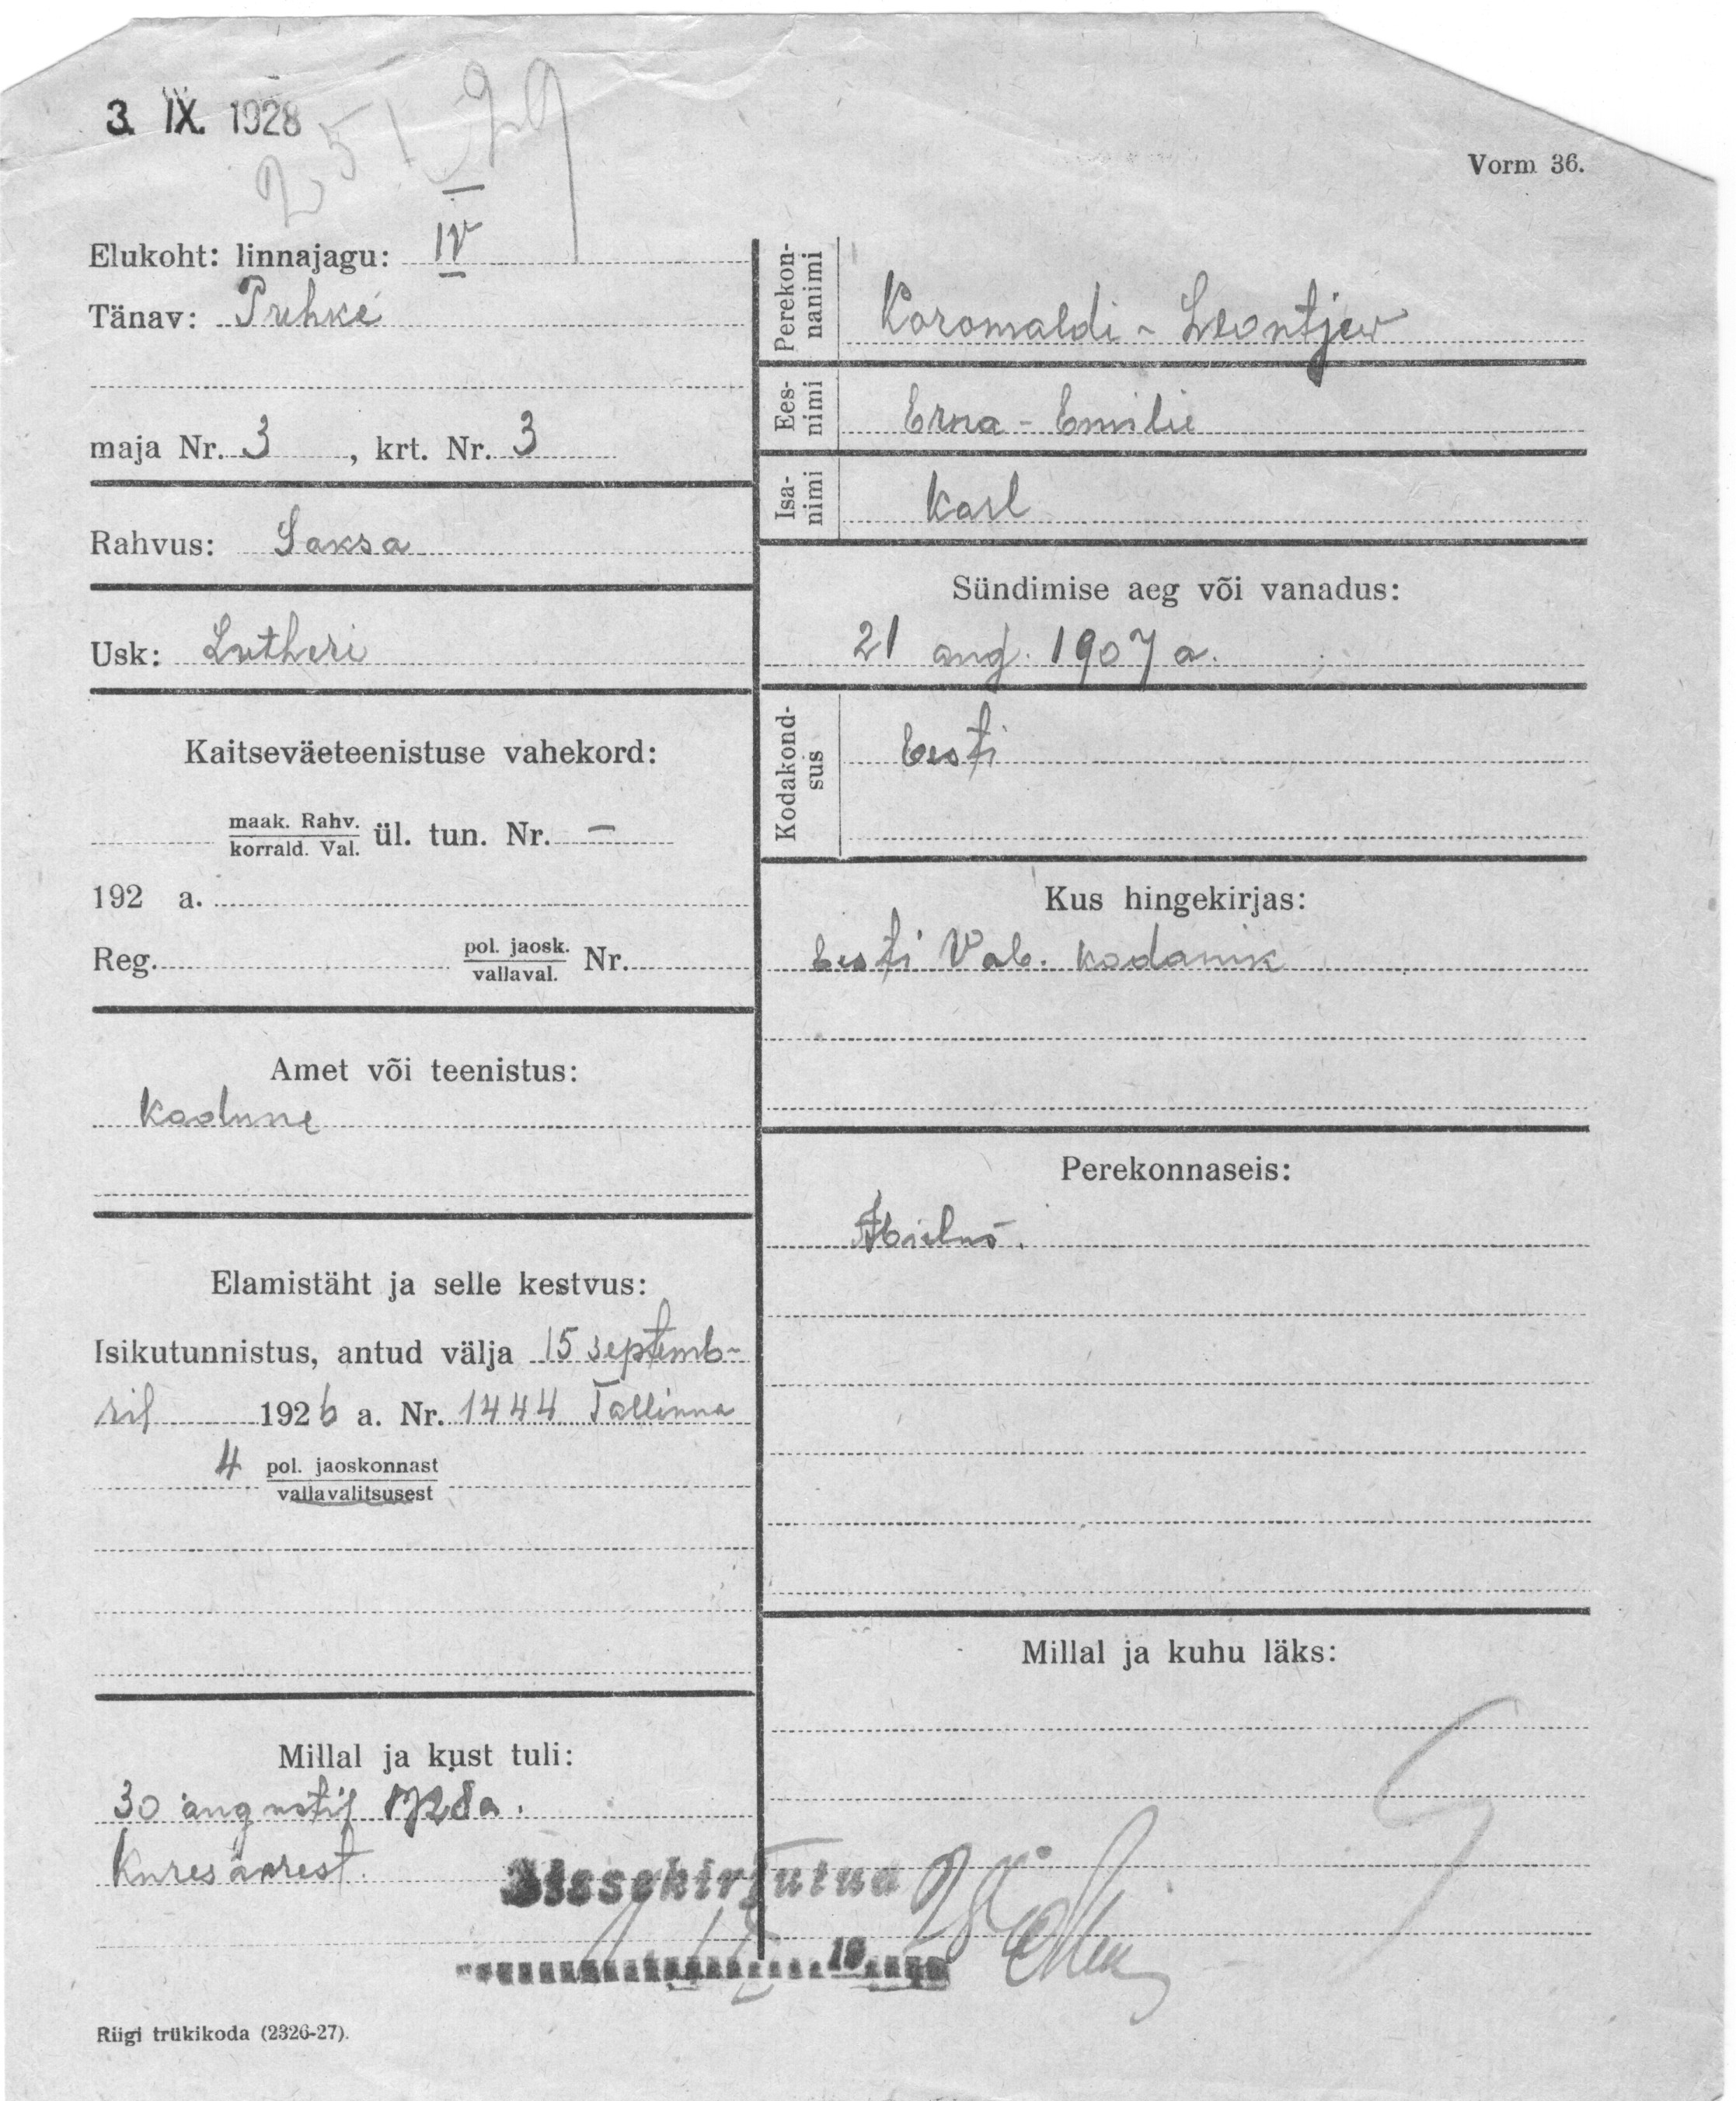 3. IX. 1928
25129
Vorm 36.
Elukoht: linnajagu: IV
Tänav: Puhke
maja Nr. 3, krt. Nr. 3
Rahvus: Saksa
Usk: Lutheri
Kaitseväeteenistuse vahekord:
maak. Rahv.
korrald. Val. ül. tun. Nr. —
192 a.
Reg. pol. jaosk.
vallaval. Nr.
Amet või teenistus:
Kodune
Elamistäht ja selle kestvus:
Isikutunnistus, antud välja 15 septemb-
ril 1926 a. Nr. 1444 Tallinna
4 pol. jaoskonnast
vallavalitsusest
Millal ja kust tuli:
30 augustil 1928 a.
Kuresaarest.
Perekon-
nanimi
Koromaldi - Leontjew
Ees-
nimi
Erna - Emilie
Isa-
nimi
Karl
Sündimise aeg või vanadus:
21 aug. 1907 a.
Kodakond-
sus
Eesti
Kus hingekirjas:
Eesti Vab. kodanik
Perekonnaseis:
Abielus.
Millal ja kuhu läks:
Sissekirjutud
19
Riigi trükikoda (2326-27).